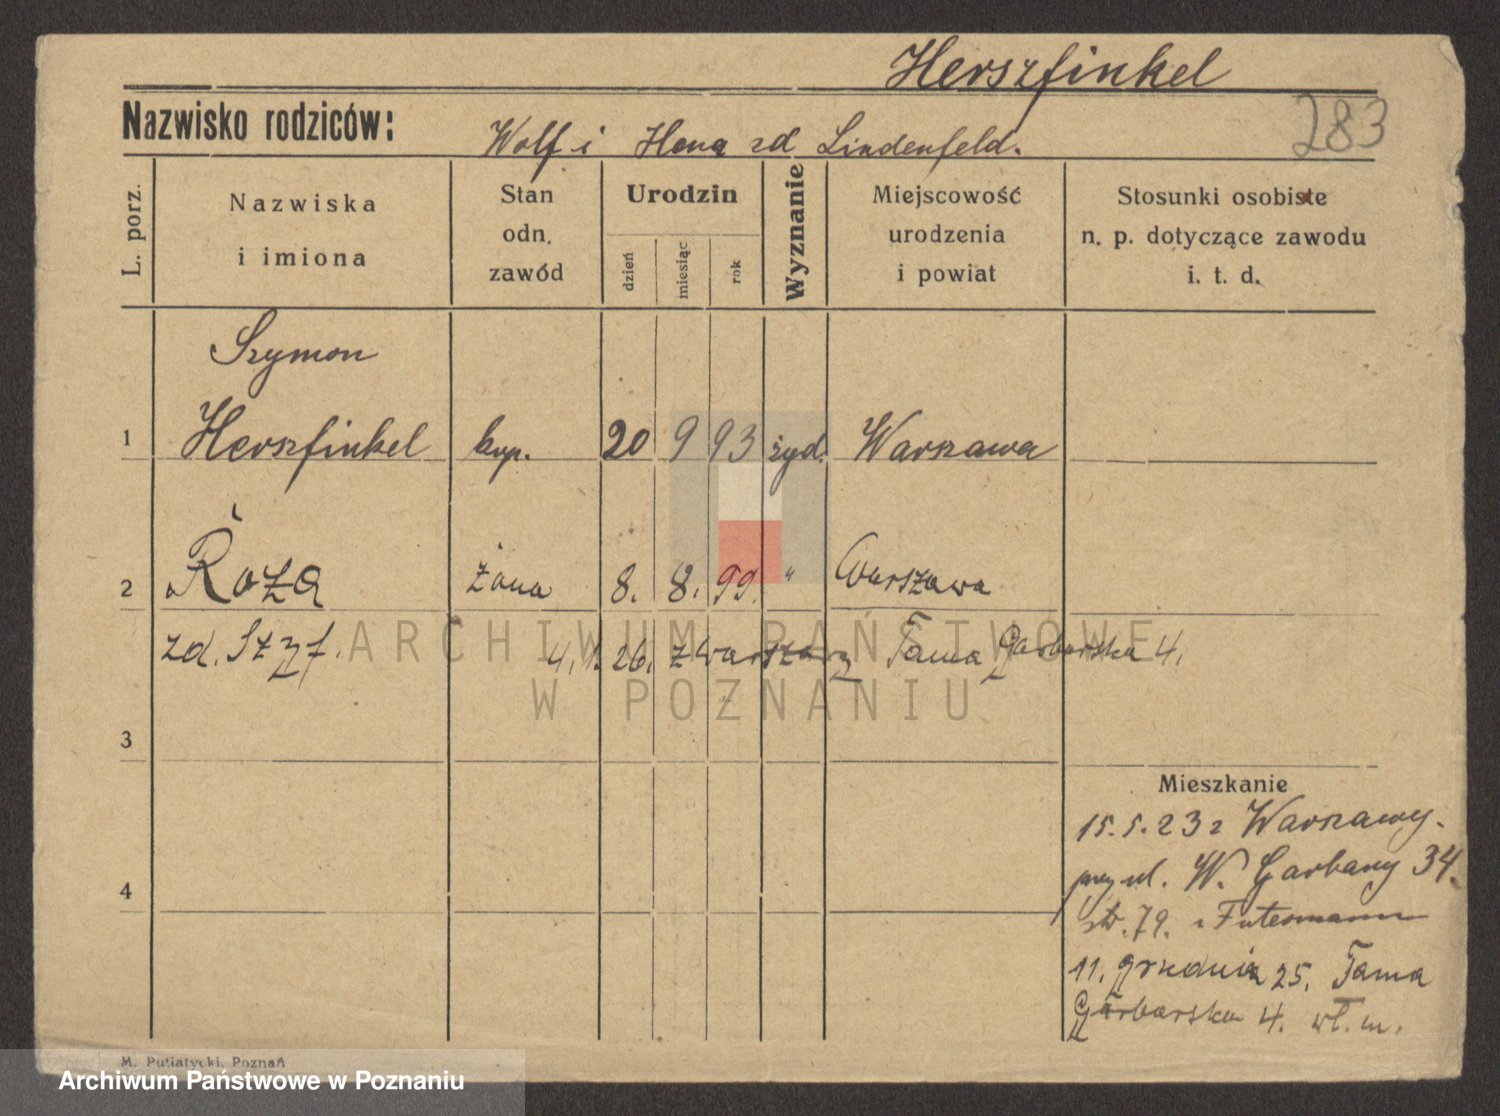 Herszfinkel
283
Nazwisko rodziców: Wolf i Hena zd Lindenfeld.
L. porz.
Nazwiska i imiona
Stan odn. zawód
Urodzin
dzień miesiąc rok
Wyznanie
Miejscowość urodzenia i powiat
Stosunki osobiste n. p. dotyczące zawodu i. t. d.
Szymon
1 Herszfinkel kup. 20 9 93 żyd. Warszawa
2 Róża żona 8. 8. 99. " Warszawa
zd. 4. 1. 26. z Warszawy Tama Garbarska 4.
3
4
Mieszkanie
15. 5. 23 z Warszawy.
przy ul. W. Garbary 34.
str. 79.
11. grudnia 25. Tama
Garbarska 4. wł. m.
M. Putiatycki, Poznań
ARCHIWUM PAŃSTWOWE
W POZNANIU
Archiwum Państwowe w Poznaniu